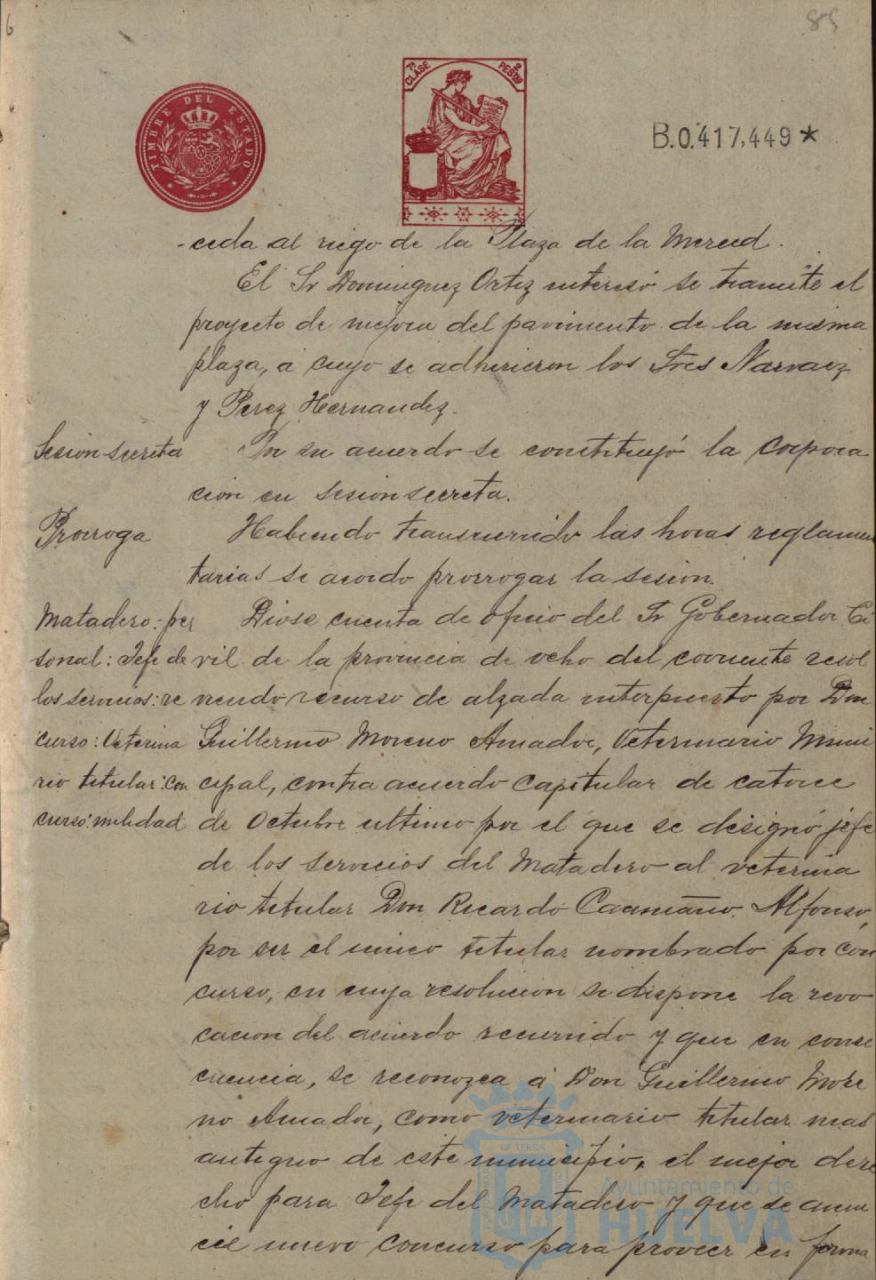 6
85
TIMBRE DEL ESTADO
7ª CLASE
2 PESTAS
B.0.417,449*
-ceda al riego de la Plaza de la Merced.
El Sr Dominguez Ortiz interesó se tramite el
proyecto de mejora del pavimento de la misma
plaza, á cuyo se adhirieron los Sres Narvaez
y Perez Hernandez.
Sesion secreta
Por su acuerdo se constituyó la Corpora
cion en sesion secreta.
Prorroga
Habiendo transcurrido las horas reglamen
tarias se acordo prorrogar la sesion.
Matadero: per
sonal: Jefe de
los servicios: re
curso: Veterina
rio titular: con
curso: nulidad
Diose cuenta de oficio del Sr Gobernador Ci
vil de la provincia de ocho del corriente resol
viendo recurso de alzada interpuesto por Don
Guillermo Moreno Amador, Veterinario Muni
cipal, contra acuerdo capitular de catorce
de Octubre ultimo por el que se designó jefe
de los servicios del Matadero al veterina
rio titular Don Ricardo Caamaño Alfonso,
por ser el unico titular nombrado por con
curso, en cuya resolucion se dispone la revo
cacion del acuerdo recurrido y que en conse
cuencia, se reconozca á Don Guillermo More
no Amador, como veterinario titular mas
antiguo de este municipio, el mejor dere
cho para Jefe del Matadero y que se anun
cie nuevo concurso para proveer en forma
Ayuntamiento de
HUELVA